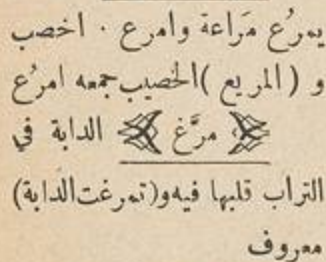 يمرُع مَراعة وامرع . اخصب
و ( المريع ) الخصيب جمعه امرُع
مرَّغ الدابة في
التراب قلبها فيه و (تمرغت الدابة)
معروف